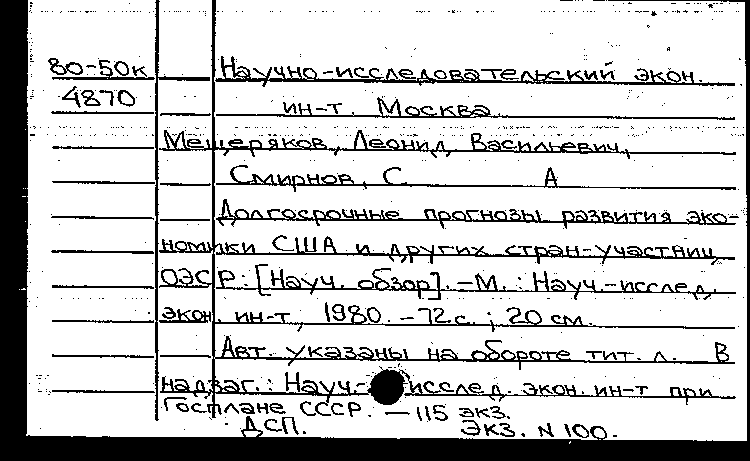 80-50к Научно-исследовательский экон.
4870 ин-т. Москва
Мещеряков, Леонид Васильевич,
Смирнов, С. А
Долгосрочные прогнозы развития эко-
номики США и других стран-участниц
ОЭСР: [Науч. обзор]. -М. : Науч.-исслед.
экон. ин-т, 1980. -72с. ; 20 см.
Авт. указаны на обороте тит. л. В
надзаг.: Науч.- исслед. экон. ин-т при
Госплане СССР. -115 экз.
ДСП. Экз. N 100.